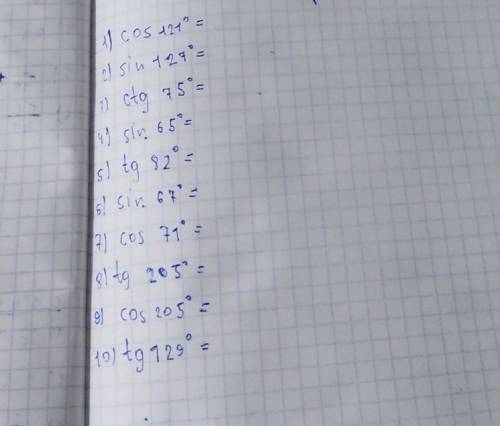 1) cos 121° =
2) sin 127° =
3) ctg 75° =
4) sin. 65° =
5) tg 82° =
6) sin. 67° =
7) cos 71° =
8) tg 205° =
9) cos 205° =
10) tg 129° =